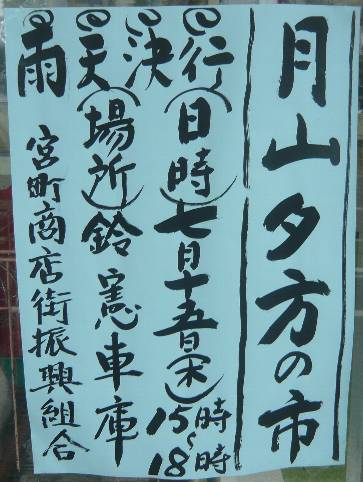 月山夕方の市
雨天決行
(日時)七月十五日(木)15時〜18時
(場所)鈴憲車庫
宮町商店街振興組合